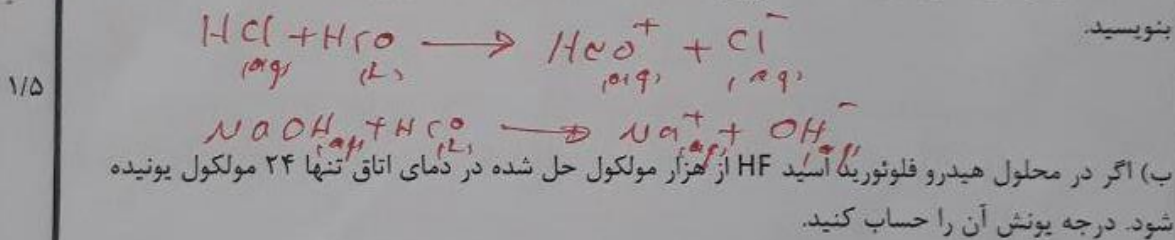 بنویسید.
HCl + H۲O → H۳O⁺ + Cl⁻
(aq) (l) (aq) (aq)
۱/۵
NaOH(aq) + H۲O(l) → Na⁺(aq) + OH⁻(aq)
ب) اگر در محلول هیدرو فلوئوریک اسید HF از هزار مولکول حل شده در دمای اتاق تنها ۲۴ مولکول یونیده
شود. درجه یونش آن را حساب کنید.